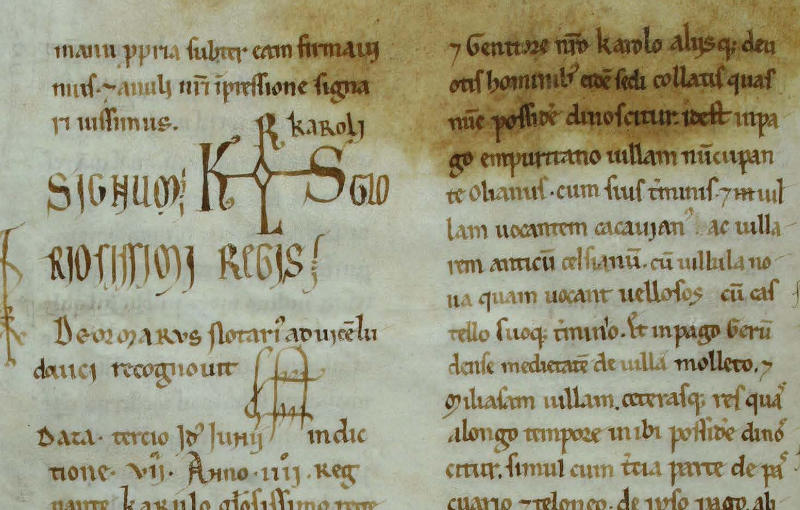 manu ppria subter eam firmavi
mus. ⁊ anuli nr̄i īpressione signa
ri iussimus.
R karoli
SIGNUM K S GLO
RIOSISSIMI REGIS
Deormarus Notari' ad vicē lu
douici recognouit
Data. tercio Id' Junii indic
tione. vii. Anno. iiii. Reg
nante karulo glosissimo rege
⁊ Genitore nr̄o karolo aliisq; deu
otis hominib' eidē sedi collatis quas
nūc possidē dinoscitur. idest in pa
go empuritano uillam nūcupan
te Olianus. cum suis t̄minis. ⁊ uil
lam uocantem cacauian'. ac uilla
rem anticū celsianū. cū uillula no
ua quam uocant uellosos cū cas
tello suoq; t̄mino. Et in pago Gerū
dense medietatē de uilla molleto. ⁊
Miliasam uillam. ceterasq; res qua'
a longo tempore inibi possidē dino
citur. simul cum t̄cia parte de pa
cuario ⁊ teloneo. de ipso pago. ab